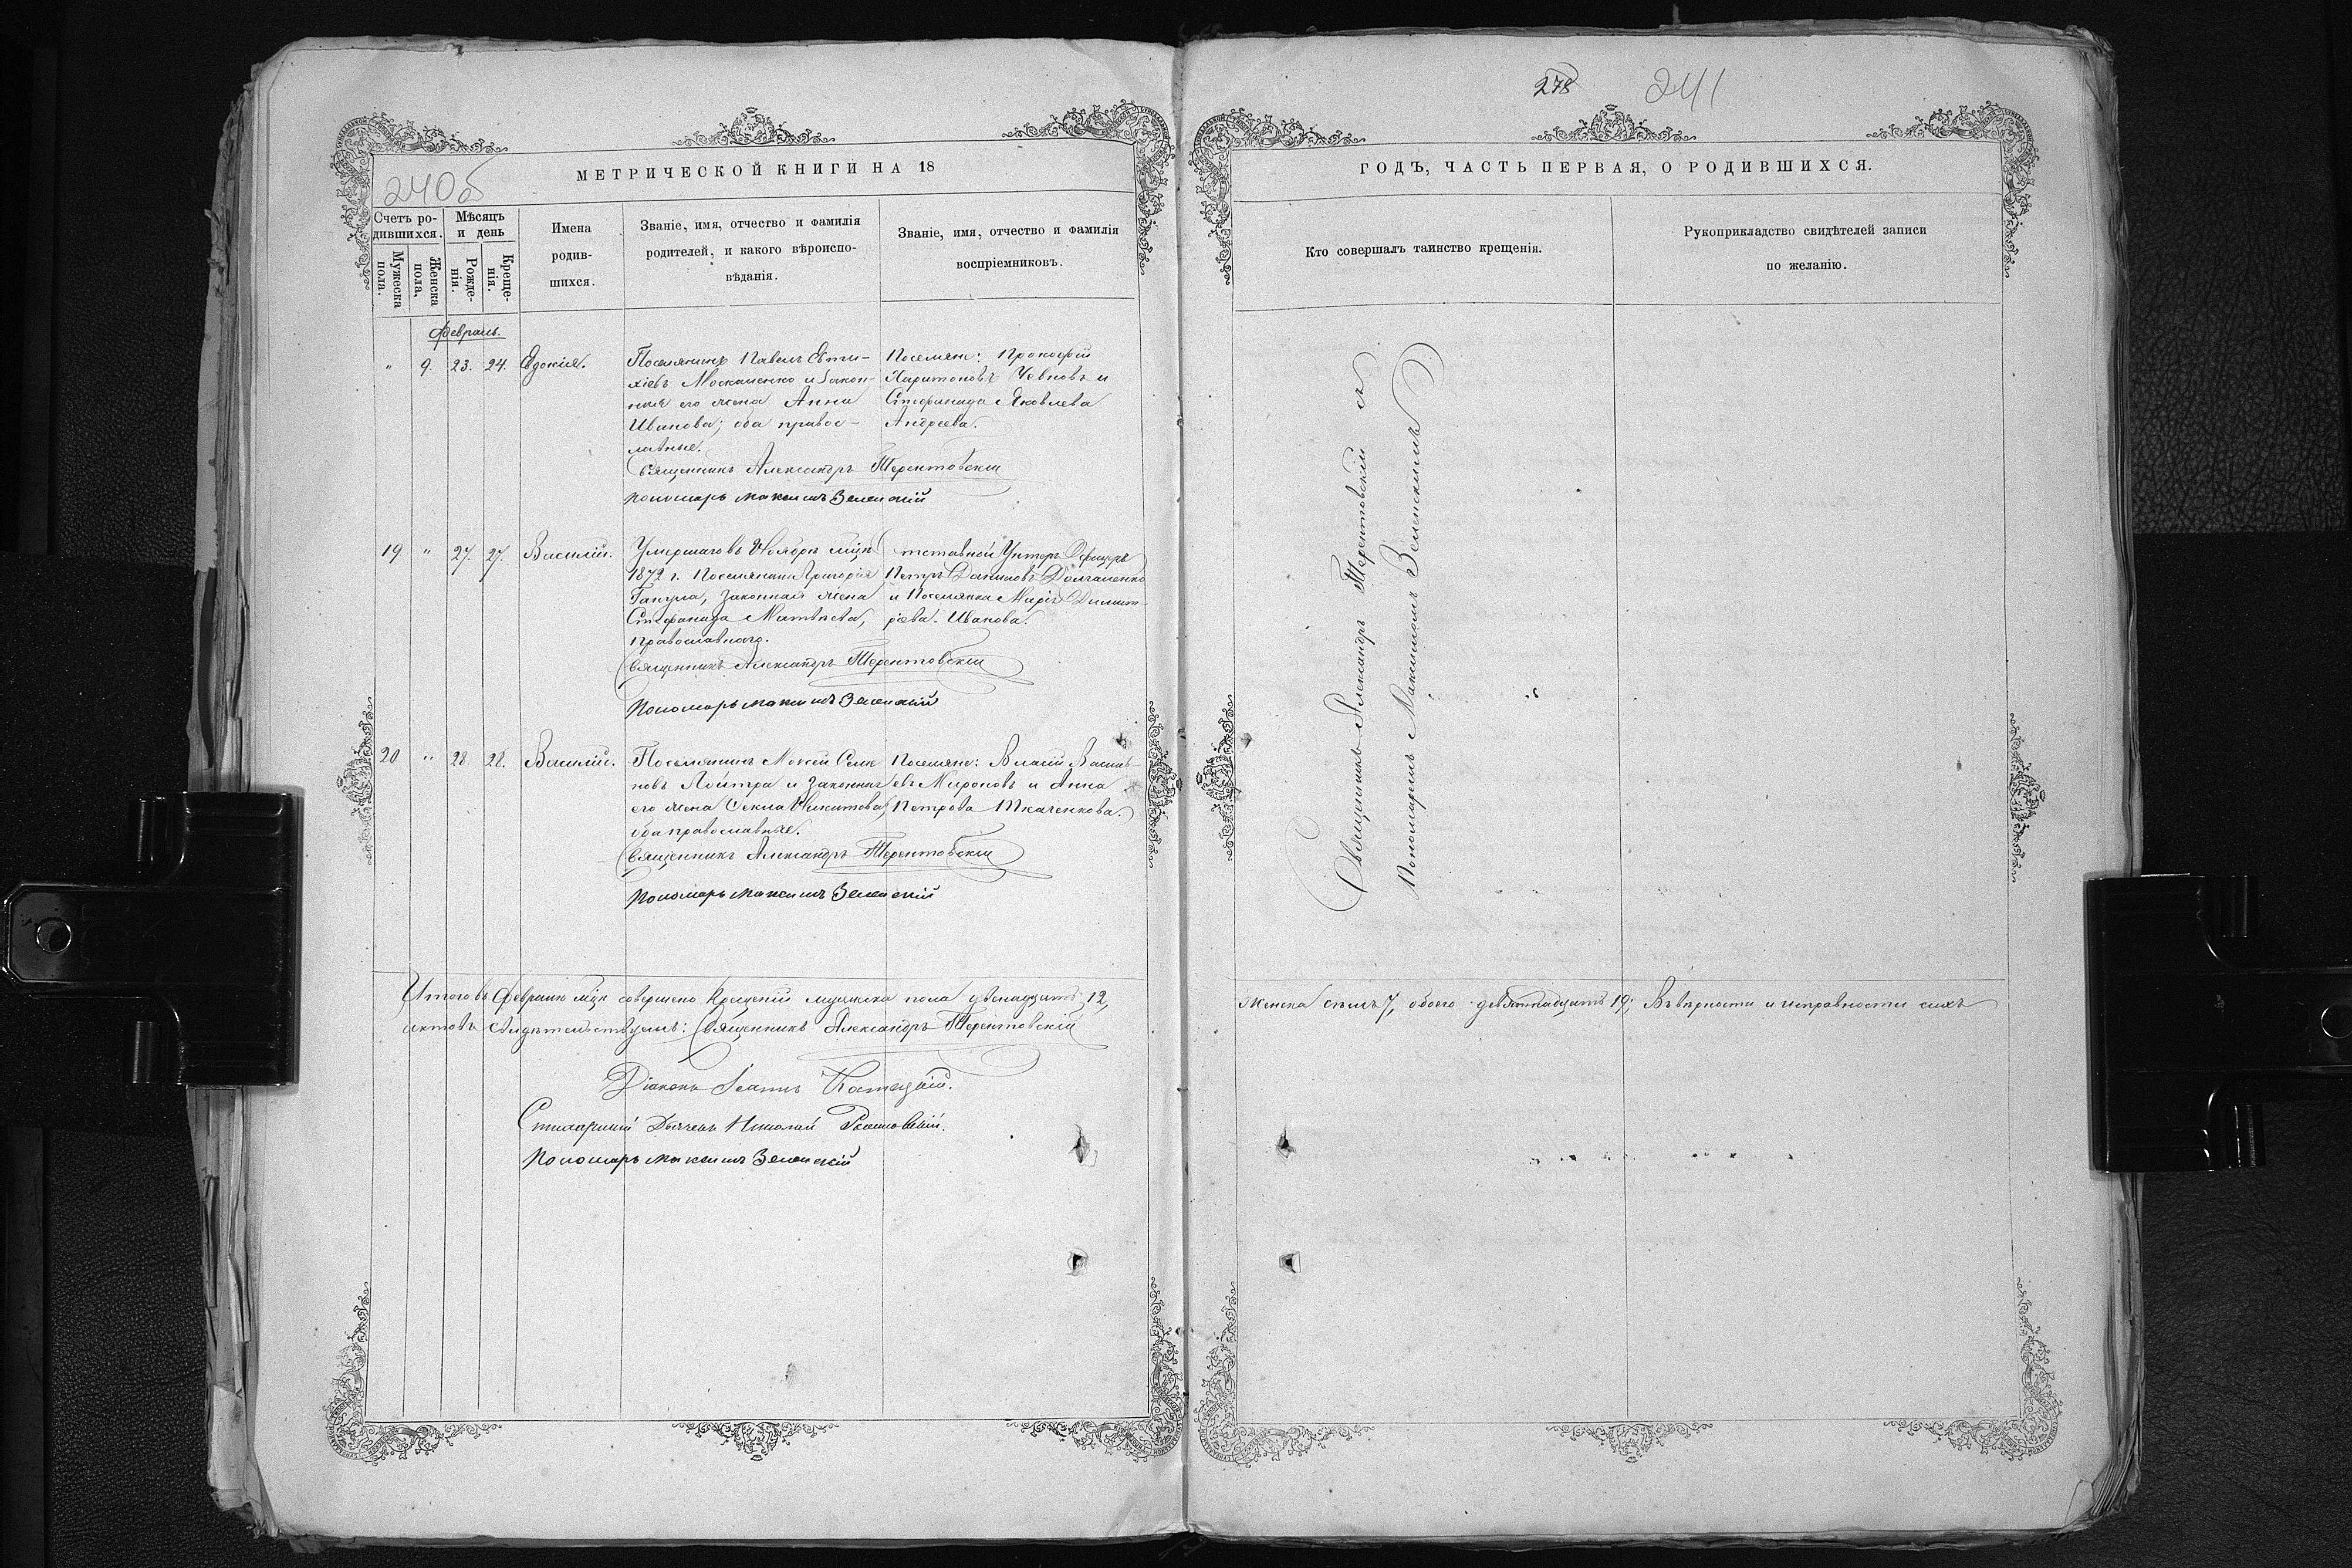 278 241
240б
МЕТРИЧЕСКОЙ КНИГИ НА 18
ГОДЪ, ЧАСТЬ ПЕРВАЯ, О РОДИВШИХСЯ.
Счетъ ро-
дившихся.
Мужеска пола.
Женска пола.
Мѣсяцъ
и день
Рожде-
нія.
Креще-
нія.
Имена
родив-
шихся.
Званіе, имя, отчество и фамилія
родителей, и какого вѣроиспо-
вѣданія.
Званіе, имя, отчество и фамилія
воспріемниковъ.
Кто совершалъ таинство крещенія.
Рукоприкладство свидѣтелей записи
по желанію.
Февраль.
" 9. 23. 24. Евдокія.
Поселянинъ Павелъ Евти-
хіевъ Москаленко и Закон-
ная его жена Анна
Иванова; оба правос-
лавные.
Поселяне: Прокофій
Харитоновъ и
Стефанида Яковлева
Андреева.
Священникъ Александръ Терентовскій
Пономарь Максимъ Зеленскій
19 " 27. 27. Василій.
Умершаго въ Ноябрѣ мцѣ
1872 г. Поселянина Григорія
законная жена
Стефанида Матвѣева,
православнаго.
отставной Унтеръ Офицеръ
Петръ Даниловъ
и Поселянка Марія Димит-
ріева Иванова.
Священникъ Александръ Терентовскій
Пономарь Максимъ Зеленскій
20 " 28. 28. Василій.
Поселянинъ Мокій Семе
новъ и Законная
его жена Ѳекла Никитова,
оба православные.
Поселяне: Власій Василь-
евъ Мироновъ и Анна
Петрова Ткаченкова.
Священникъ Александръ Терентовскій
Пономарь Максимъ Зеленскій
Священникъ Александръ Терентовскій съ
Пономаремъ Максимомъ Зеленскимъ
Итого въ Февралѣ мцѣ совершено крещеній мужеска пола двенадцать 12,
женска семь 7, обоего девятнадцать 19; Въ вѣрности и исправности сихъ
актовъ свидѣтельствуемъ: Священникъ Александръ Терентовскій
Діаконъ Іоаннъ
Стихарный Дьячекъ Николай
Пономарь Максимъ Зеленскій